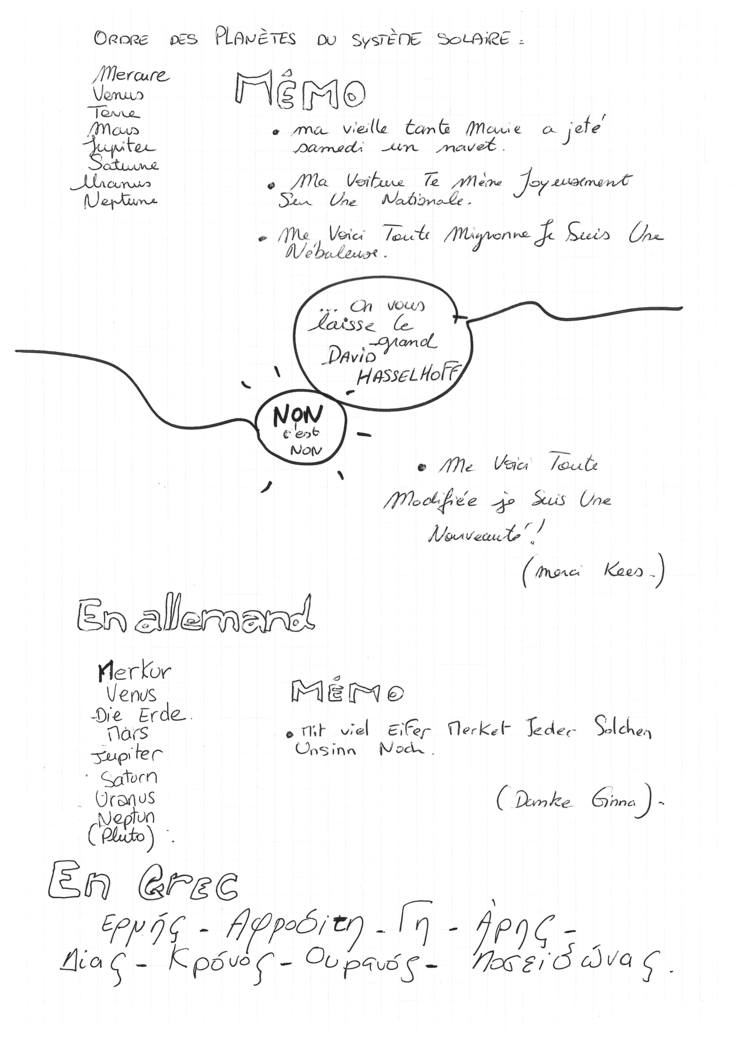 ORDRE DES PLANÈTES DU SYSTÈME SOLAIRE :
Mercure
Venus
Terre
Mars
Jupiter
Saturne
Uranus
Neptune
MÉMO
• ma vieille tante Marie a jeté
samedi un navet.
• Ma Voiture Te Mène Joyeusement
Sur Une Nationale.
• Me Voici Toute Mignonne Je Suis Une
Nébuleuse.
... On vous
laisse le
grand
DAVID
HASSELHOFF
NON
c'est
NON
• Me Voici Toute
Modifiée je Suis Une
Nouveauté !
(merci Kees.)
En allemand
Merkur
Venus
-Die Erde.
Mars
Jupiter
Saturn
Uranus
Neptun
(Pluto).
MÉMO
• Mit viel Eifer Merket Jeder Solchen
Unsinn Noch.
(Danke Ginna).
En Grec
Ερμής - Αφροδίτη - Γη - Άρης -
Δίας - Κρόνος - Ουρανός - Ποσειδώνας.